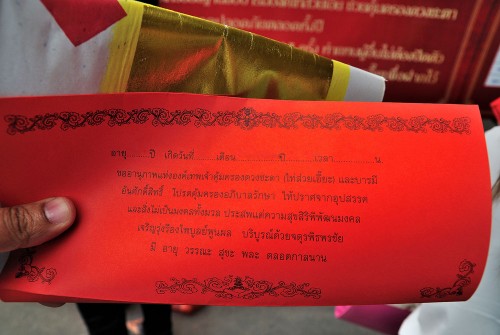 อายุ........ปี เกิดวันที่........เดือน................ปี..........เวลา................น.
ขออานุภาพแห่งองค์เทพเจ้าคุ้มครองดวงชะตา (ไท้ส่วยเอี๊ยะ) และบารมี
อันศักดิ์สิทธิ์ โปรดคุ้มครองอภิบาลรักษา ให้ปราศจากอุปสรรค
และสิ่งไม่เป็นมงคลทั้งมวล ประสพแต่ความสุขสิริพิพัฒนมงคล
เจริญรุ่งเรืองไพบูลย์พูนผล บริบูรณ์ด้วยจตุรพิธพรชัย
มี อายุ วรรณะ สุขะ พละ ตลอดกาลนาน